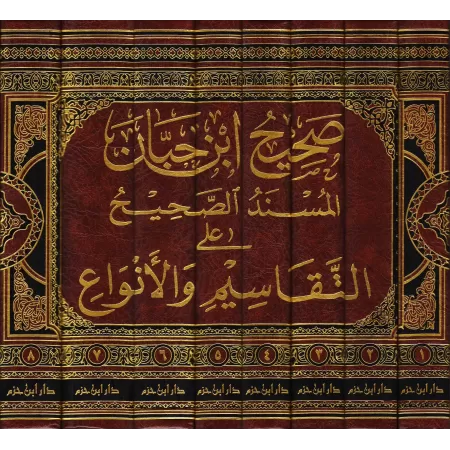 صَحِيحُ ابْنِ حِبَّانَ
المُسْنَدُ الصَّحِيحُ
عَلَى
التَّقَاسِيمِ وَالأَنْوَاعِ
١ ٢ ٣ ٤ ٥ ٦ ٧ ٨
دار ابن حزم دار ابن حزم دار ابن حزم دار ابن حزم دار ابن حزم دار ابن حزم دار ابن حزم دار ابن حزم